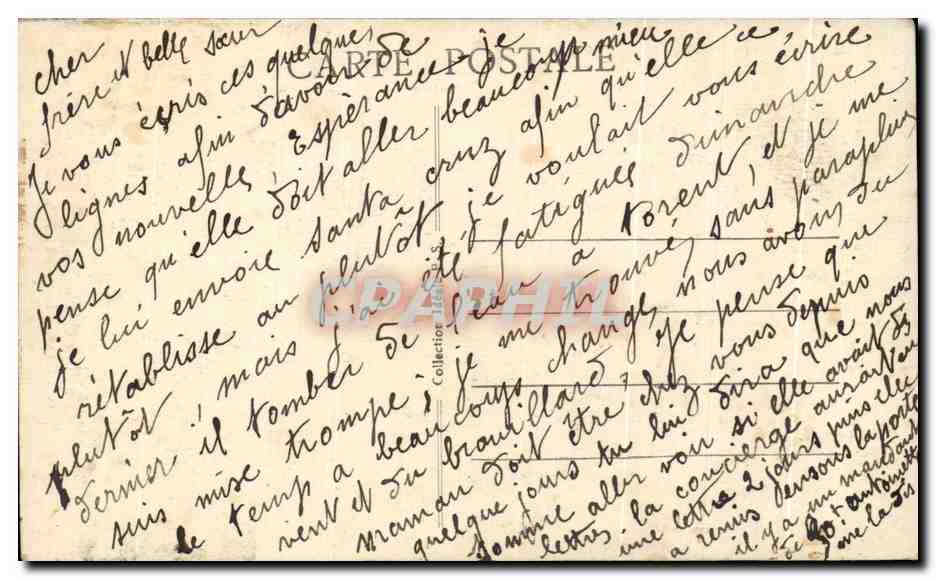 CARTE POSTALE
cher
frère et belle sœur
Je vous écris ces quelques
lignes afin d'avoir de
vos nouvelles, Espérance je
pense qu'elle doit aller beaucoup mieux
je lui envoie santa cruz afin qu'elle ce
rétablisse au plutôt je voulait vous écrire
plutôt, mais j'ai été fatiguée dimanche
dernier il tomber de l'eau a torent, et je me
suis mise trompé, je me trouvé sans parapluie
le temp a beaucoups changé, nous avoins du
vent et du brouillard, Je pense que
maman doit être chez vous depuis
quelque jours tu lui dira que nous
somme aller voir si elle avait des
lettres la concierge aurait eu
une lettre 2 jours puis elle
a remis dessous la porte
il y a un mandat
de 40 + antoinette
me la dis
Collection Idéale P.S.
CPAPHIL